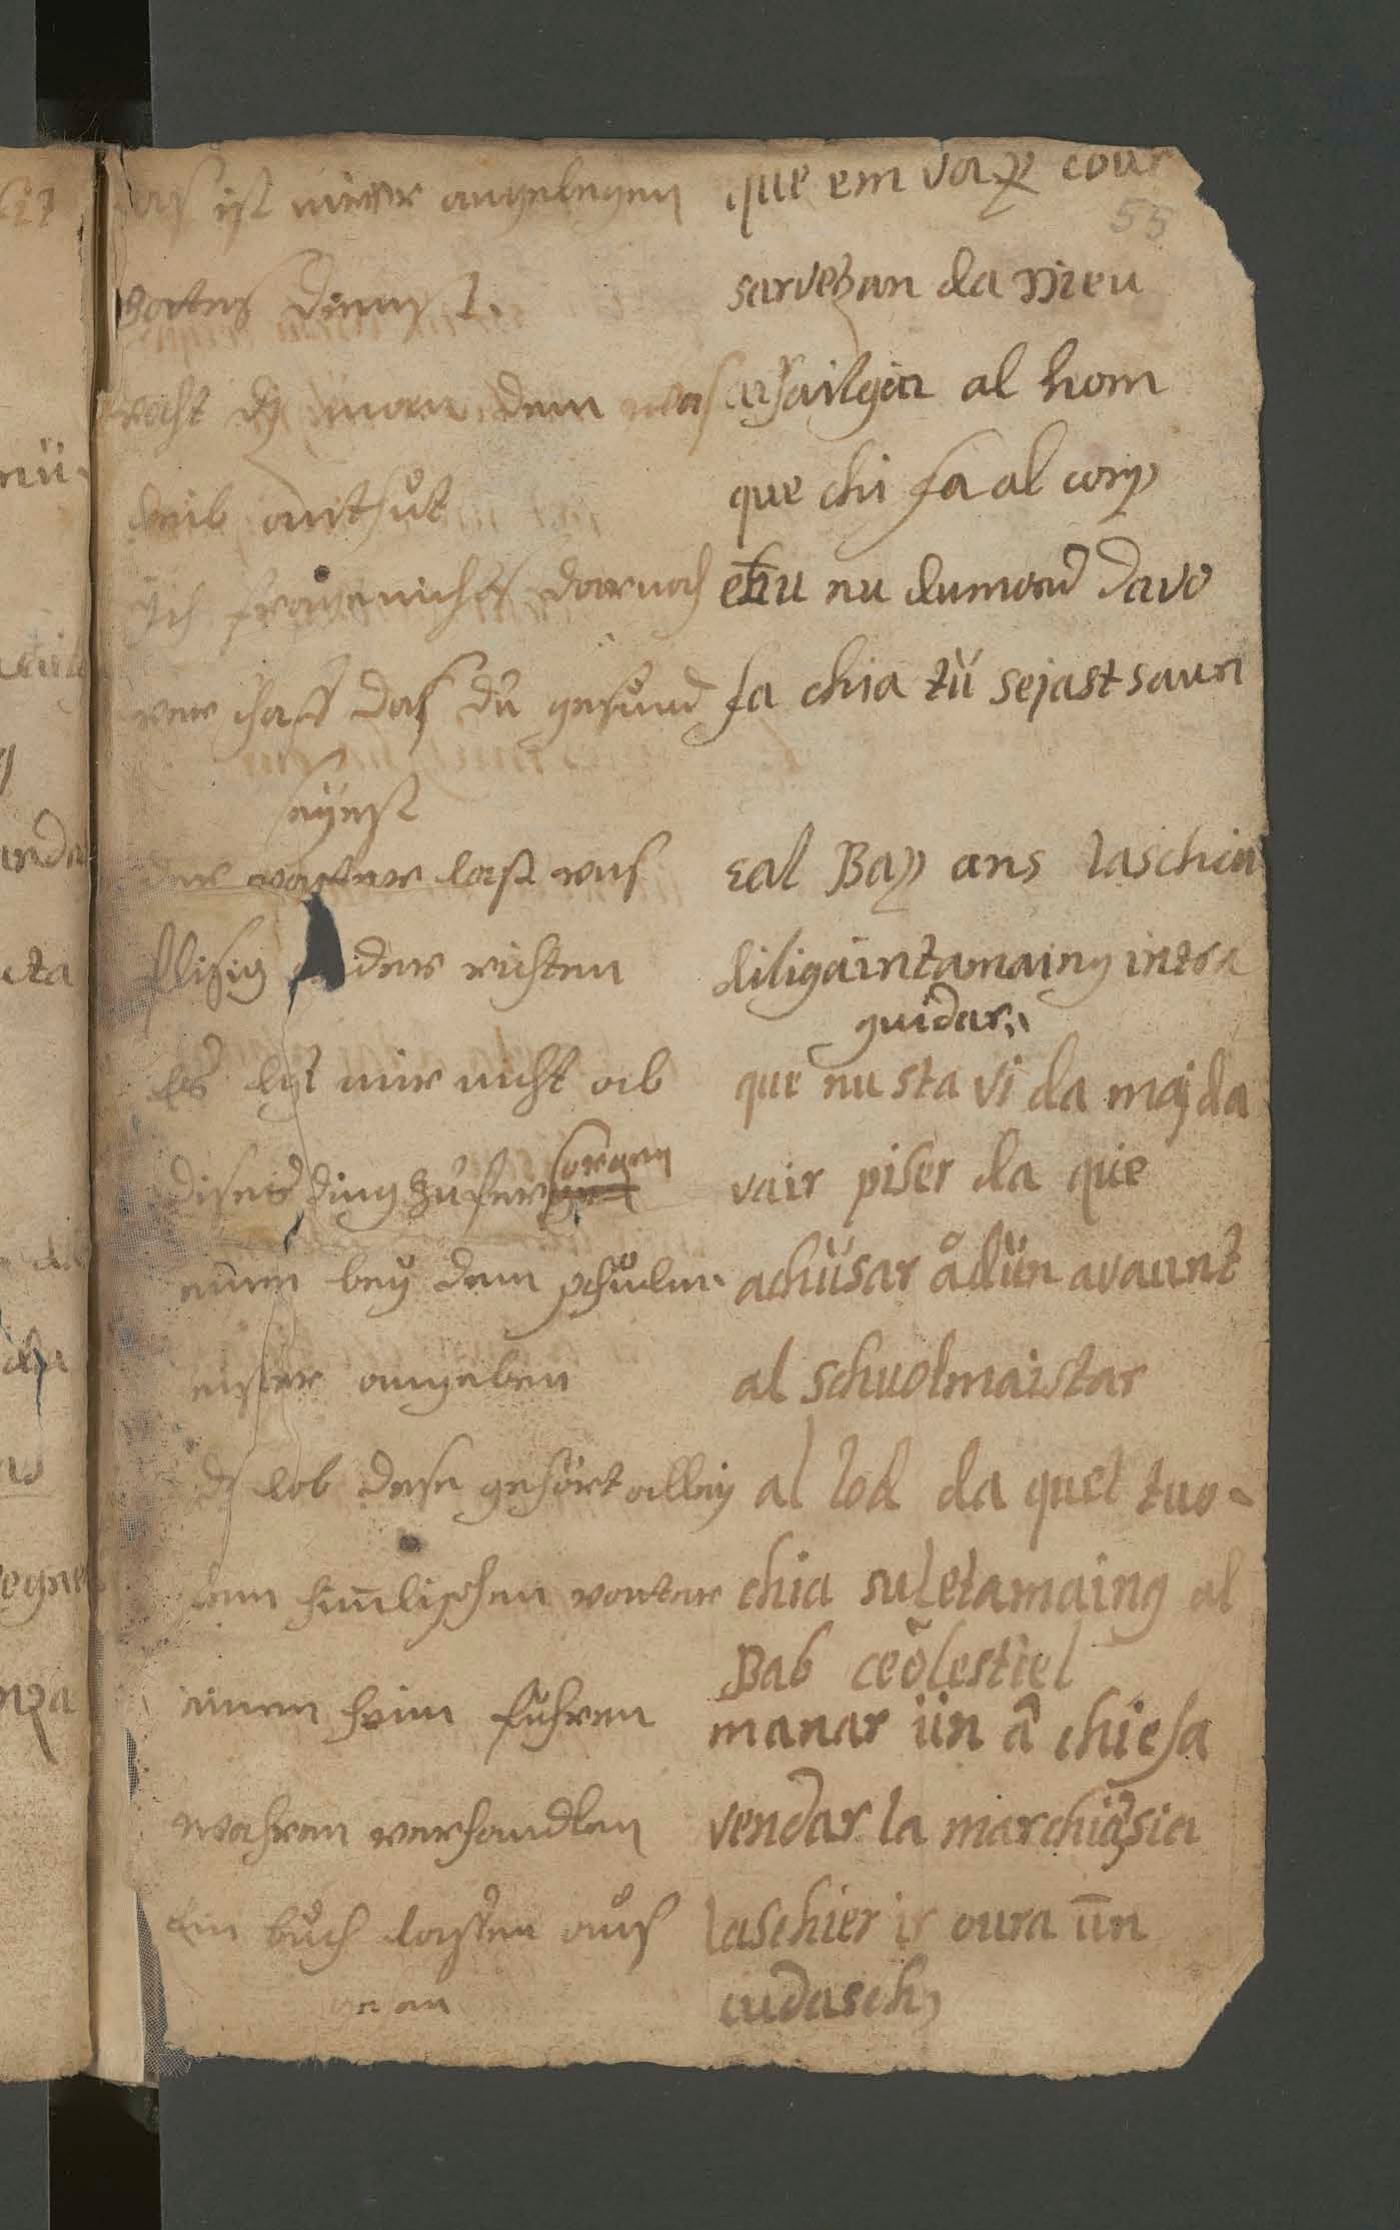 das ist mier angelegen que em va per cour
55
gottes dienst. sarvezan da Dieu
macht dz man dem was artailgia al hom
leib anthut que chi fa al corp
ich frage nichts darnach eħu nu dumond davo
verschaff das du gesund fa chia tü sejast saun
seyest
der vatter last uns eal Bap ans laschia
flisig under richten diligaintamaing intra
guidar.
Es lyt mir nicht ob que nu sta vi da maj da
dises ding zu ver sorgen vair piser da que
einen bey dem schulm achüsar ådün avaunt
eister angeben al schuolmaistar
dz lob dese gehört allein al lod da quel tuo-
dem himlischen vatter chia suletamaing al
Bab ceolestiel
einen heim führen manar ün â chiesa
wahren verhandlen vendar la marchiäsia
Ein buch lassen aus laschier ir oura ün
gen cudasch,